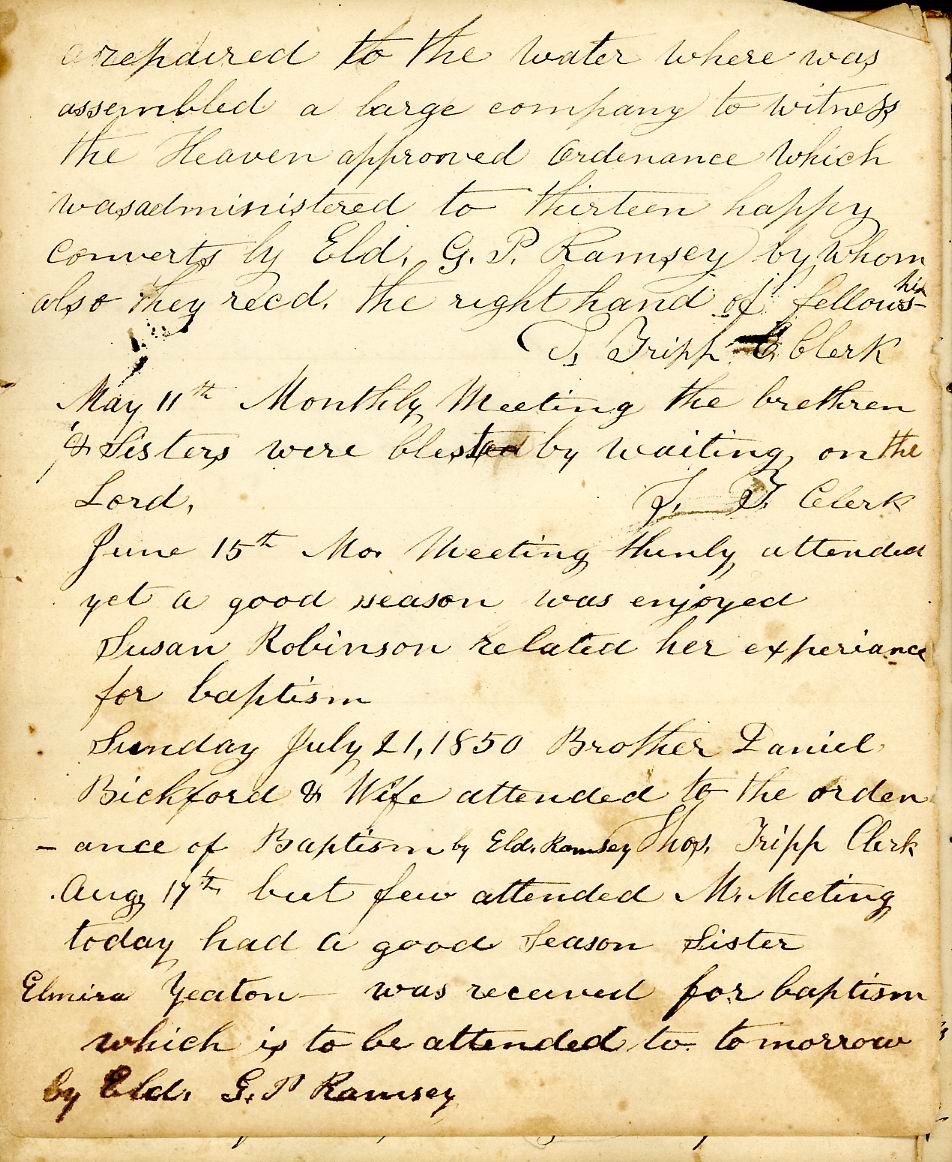 a repaired to the water where was
assembled a large company to witness
the Heaven approoved Ordenance which
was administered to thirteen happy
converts by Eld. G. P. Ramsey by whom
also they recd. the right hand of fellows-
hip
T. Tripp C Clerk
May 11th Monthly Meeting the brethren
& Sisters were blessed by waiting on the
Lord. T. T. Clerk
June 15th Mo. Meeting thinly attended
yet a good season was enjoyed
Susan Robinson related her experiance
for baptism
Sunday July 21, 1850 Brother Daniel
Bickford & Wife attended to the orden
- ance of Baptism by Eld. Ramsey Thos. Tripp Clerk
Aug. 17th but few attended M. Meeting
today had a good Season Sister
Elmira Yeaton - was received for baptism
which is to be attended to tomorrow
by Eld. G. P. Ramsey